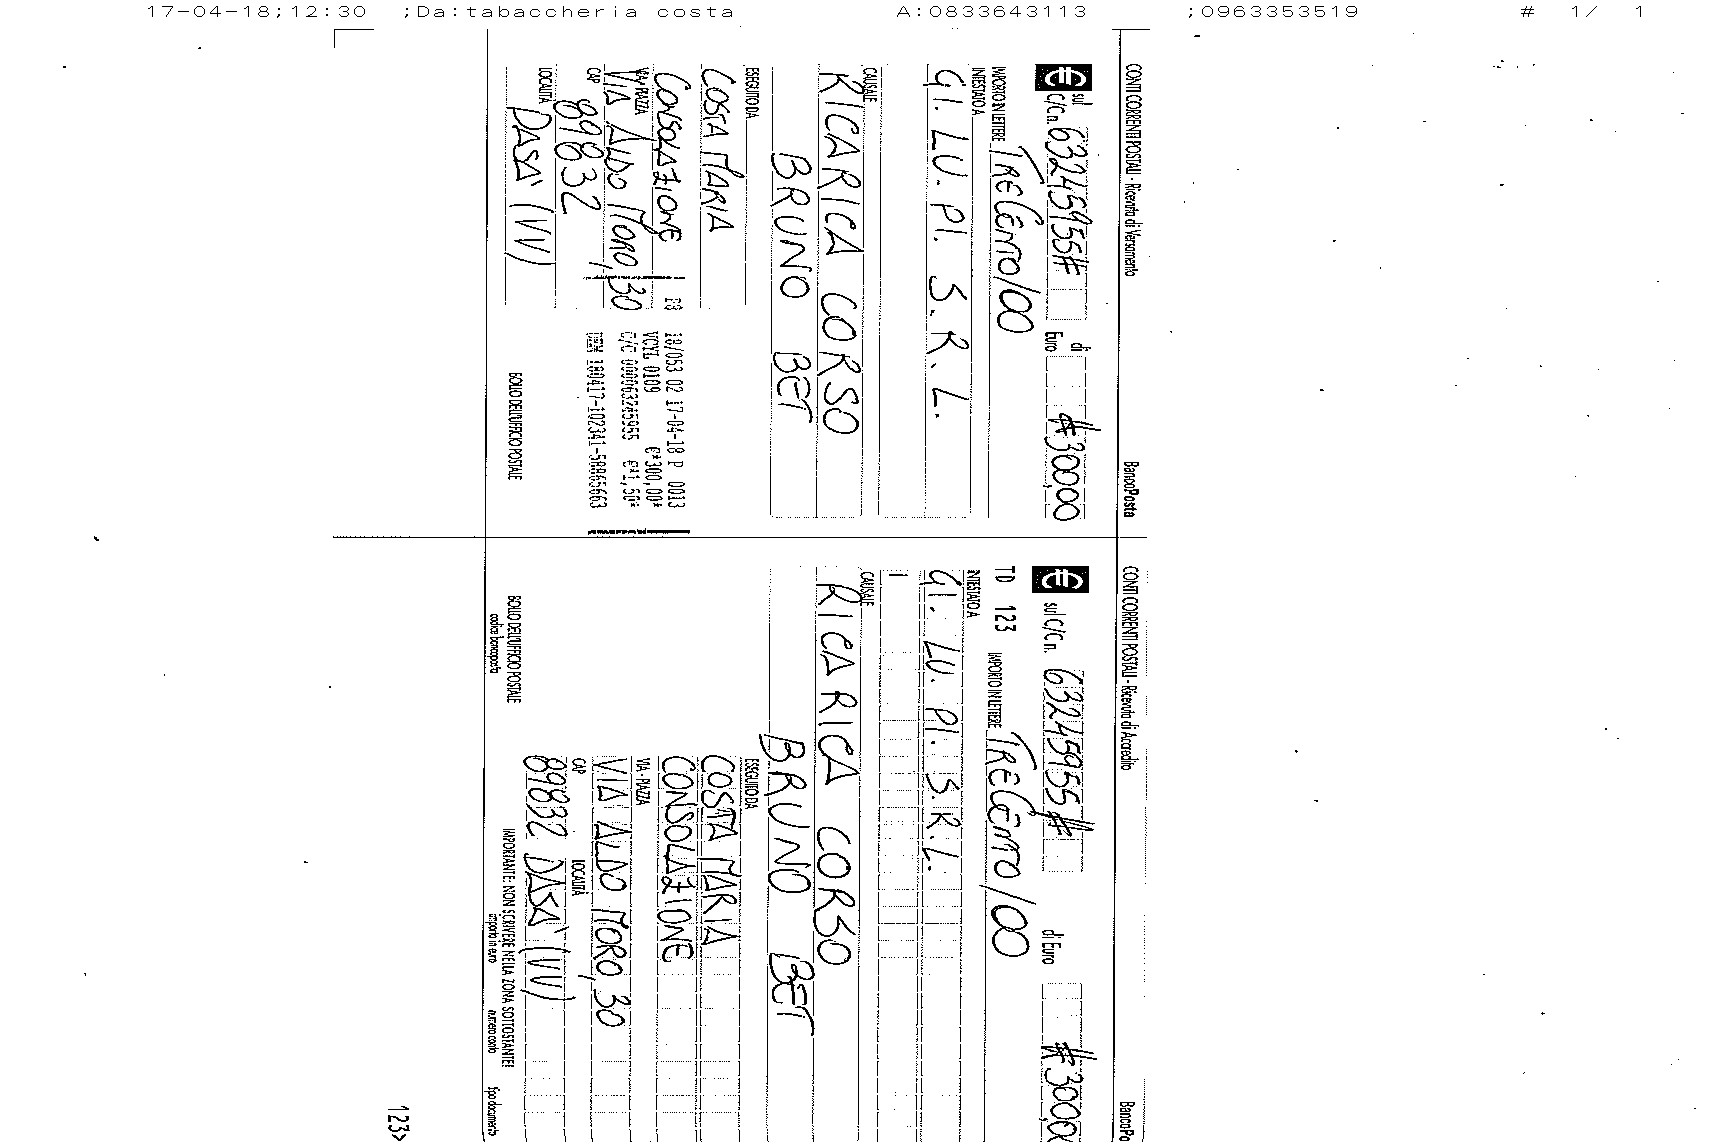 17-04-18;12:30 ;Da:tabaccheria costa A:0833643113 ;0963353519 # 1/ 1
CONTI CORRENTI POSTALI - Ricevuta di Versamento BancoPosta
sul C/C n. 63245955# di Euro #300,00
IMPORTO IN LETTERE TRECENTO/00
INTESTATO A
GI. LU. PI. S. R. L.
CAUSALE
RICARICA CORSO
BRUNO BET
ESEGUITO DA
COSTA MARIA
CONSOLAZIONE
VIA - PIAZZA
VIA ALDO MORO, 30
CAP
89832
LOCALITÀ
DASA' (VV)
18/053 02 17-04-18 P 0013
VCYL 0109 €*300,00*
C/C 000063245955 €*1,50*
BOLLO DELL'UFFICIO POSTALE
CONTI CORRENTI POSTALI - Ricevuta di Accredito BancoPo
sul C/C n. 63245955# di Euro #300,0
TD 123 IMPORTO IN LETTERE TRECENTO/00
INTESTATO A
GI. LU. PI. S. R. L.
CAUSALE
RICARICA CORSO
BRUNO BET
ESEGUITO DA
COSTA MARIA
CONSOLAZIONE
VIA - PIAZZA
VIA ALDO MORO, 30
CAP LOCALITÀ
89832 DASA' (VV)
BOLLO DELL'UFFICIO POSTALE
codice bancoposta
IMPORTANTE: NON SCRIVERE NELLA ZONA SOTTOSTANTE!
importo in euro numero conto tipo documento
123>